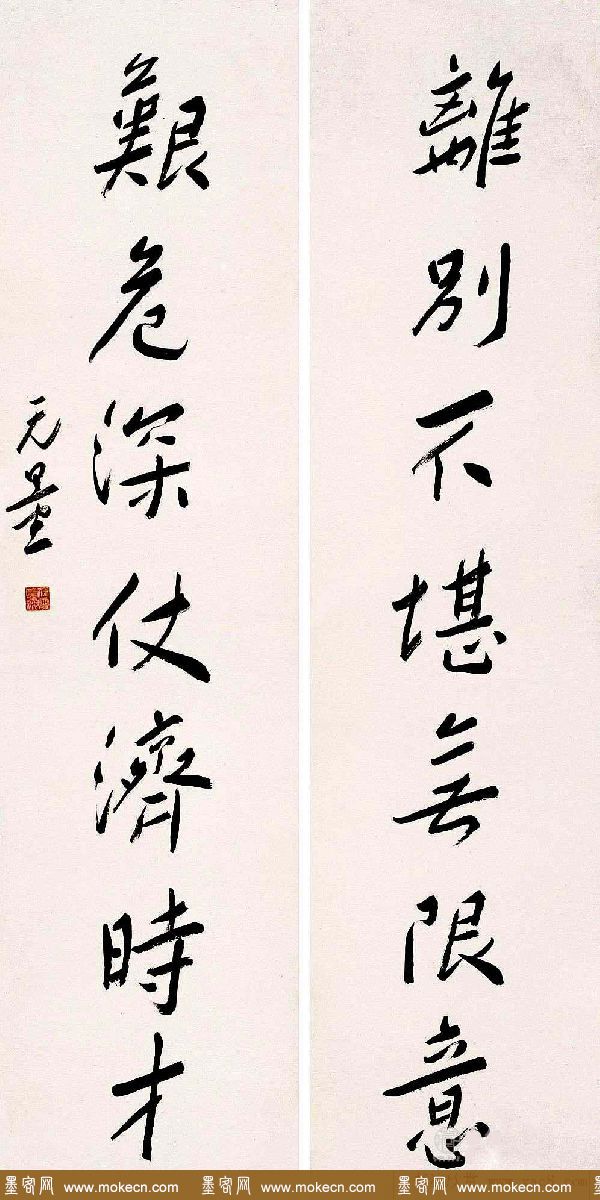 離別不堪無限意
艱危深仗濟時才
无量
墨客网 www.mokecn.com 墨客网 www.mokecn.com 墨客网 www.mokecn.com